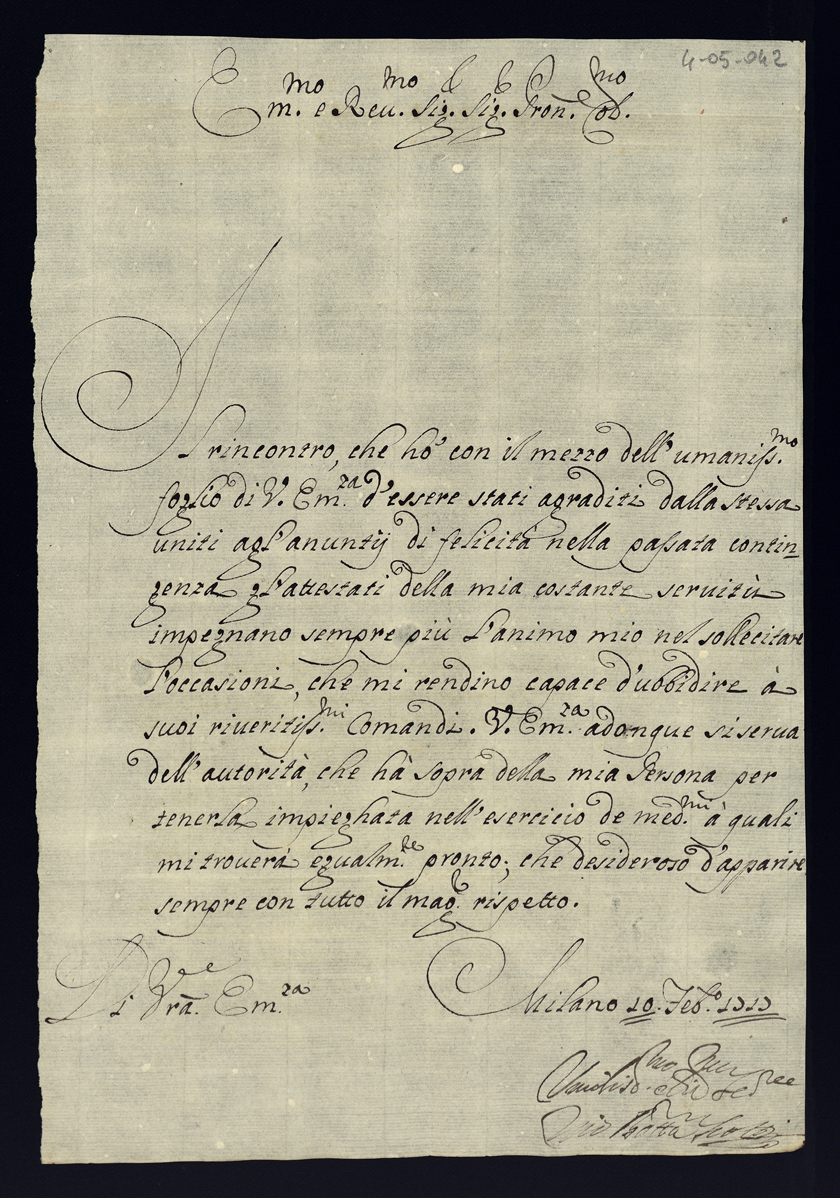 4-05-042
Em.mo e Reu.mo Sig. Sig. Pron. Col.mo
Il rincontro, che hò con il mezzo dell'umaniss.mo
foglio di V. Em.za d'essere stati agraditi dalla stessa
uniti agl'anuntÿ di felicità nella passata contin_
genza gl'attestati della mia costante seruitù
impegnano sempre più l'animo mio nel sollecitare
l'occasioni, che mi rendino capace d'ubbidire à
suoi riueritiss.mi Comandi. V. Em.za adonque si serua
dell'autorità, che hà sopra della mia Persona per
tenerla impieghata nell'esercicio de med.mi à quali
mi trouerà egualm.te pronto; che desideroso d'apparire
sempre con tutto il mag. rispetto.
Di Vrã. Em.za
Milano 10. Feb.o 1717